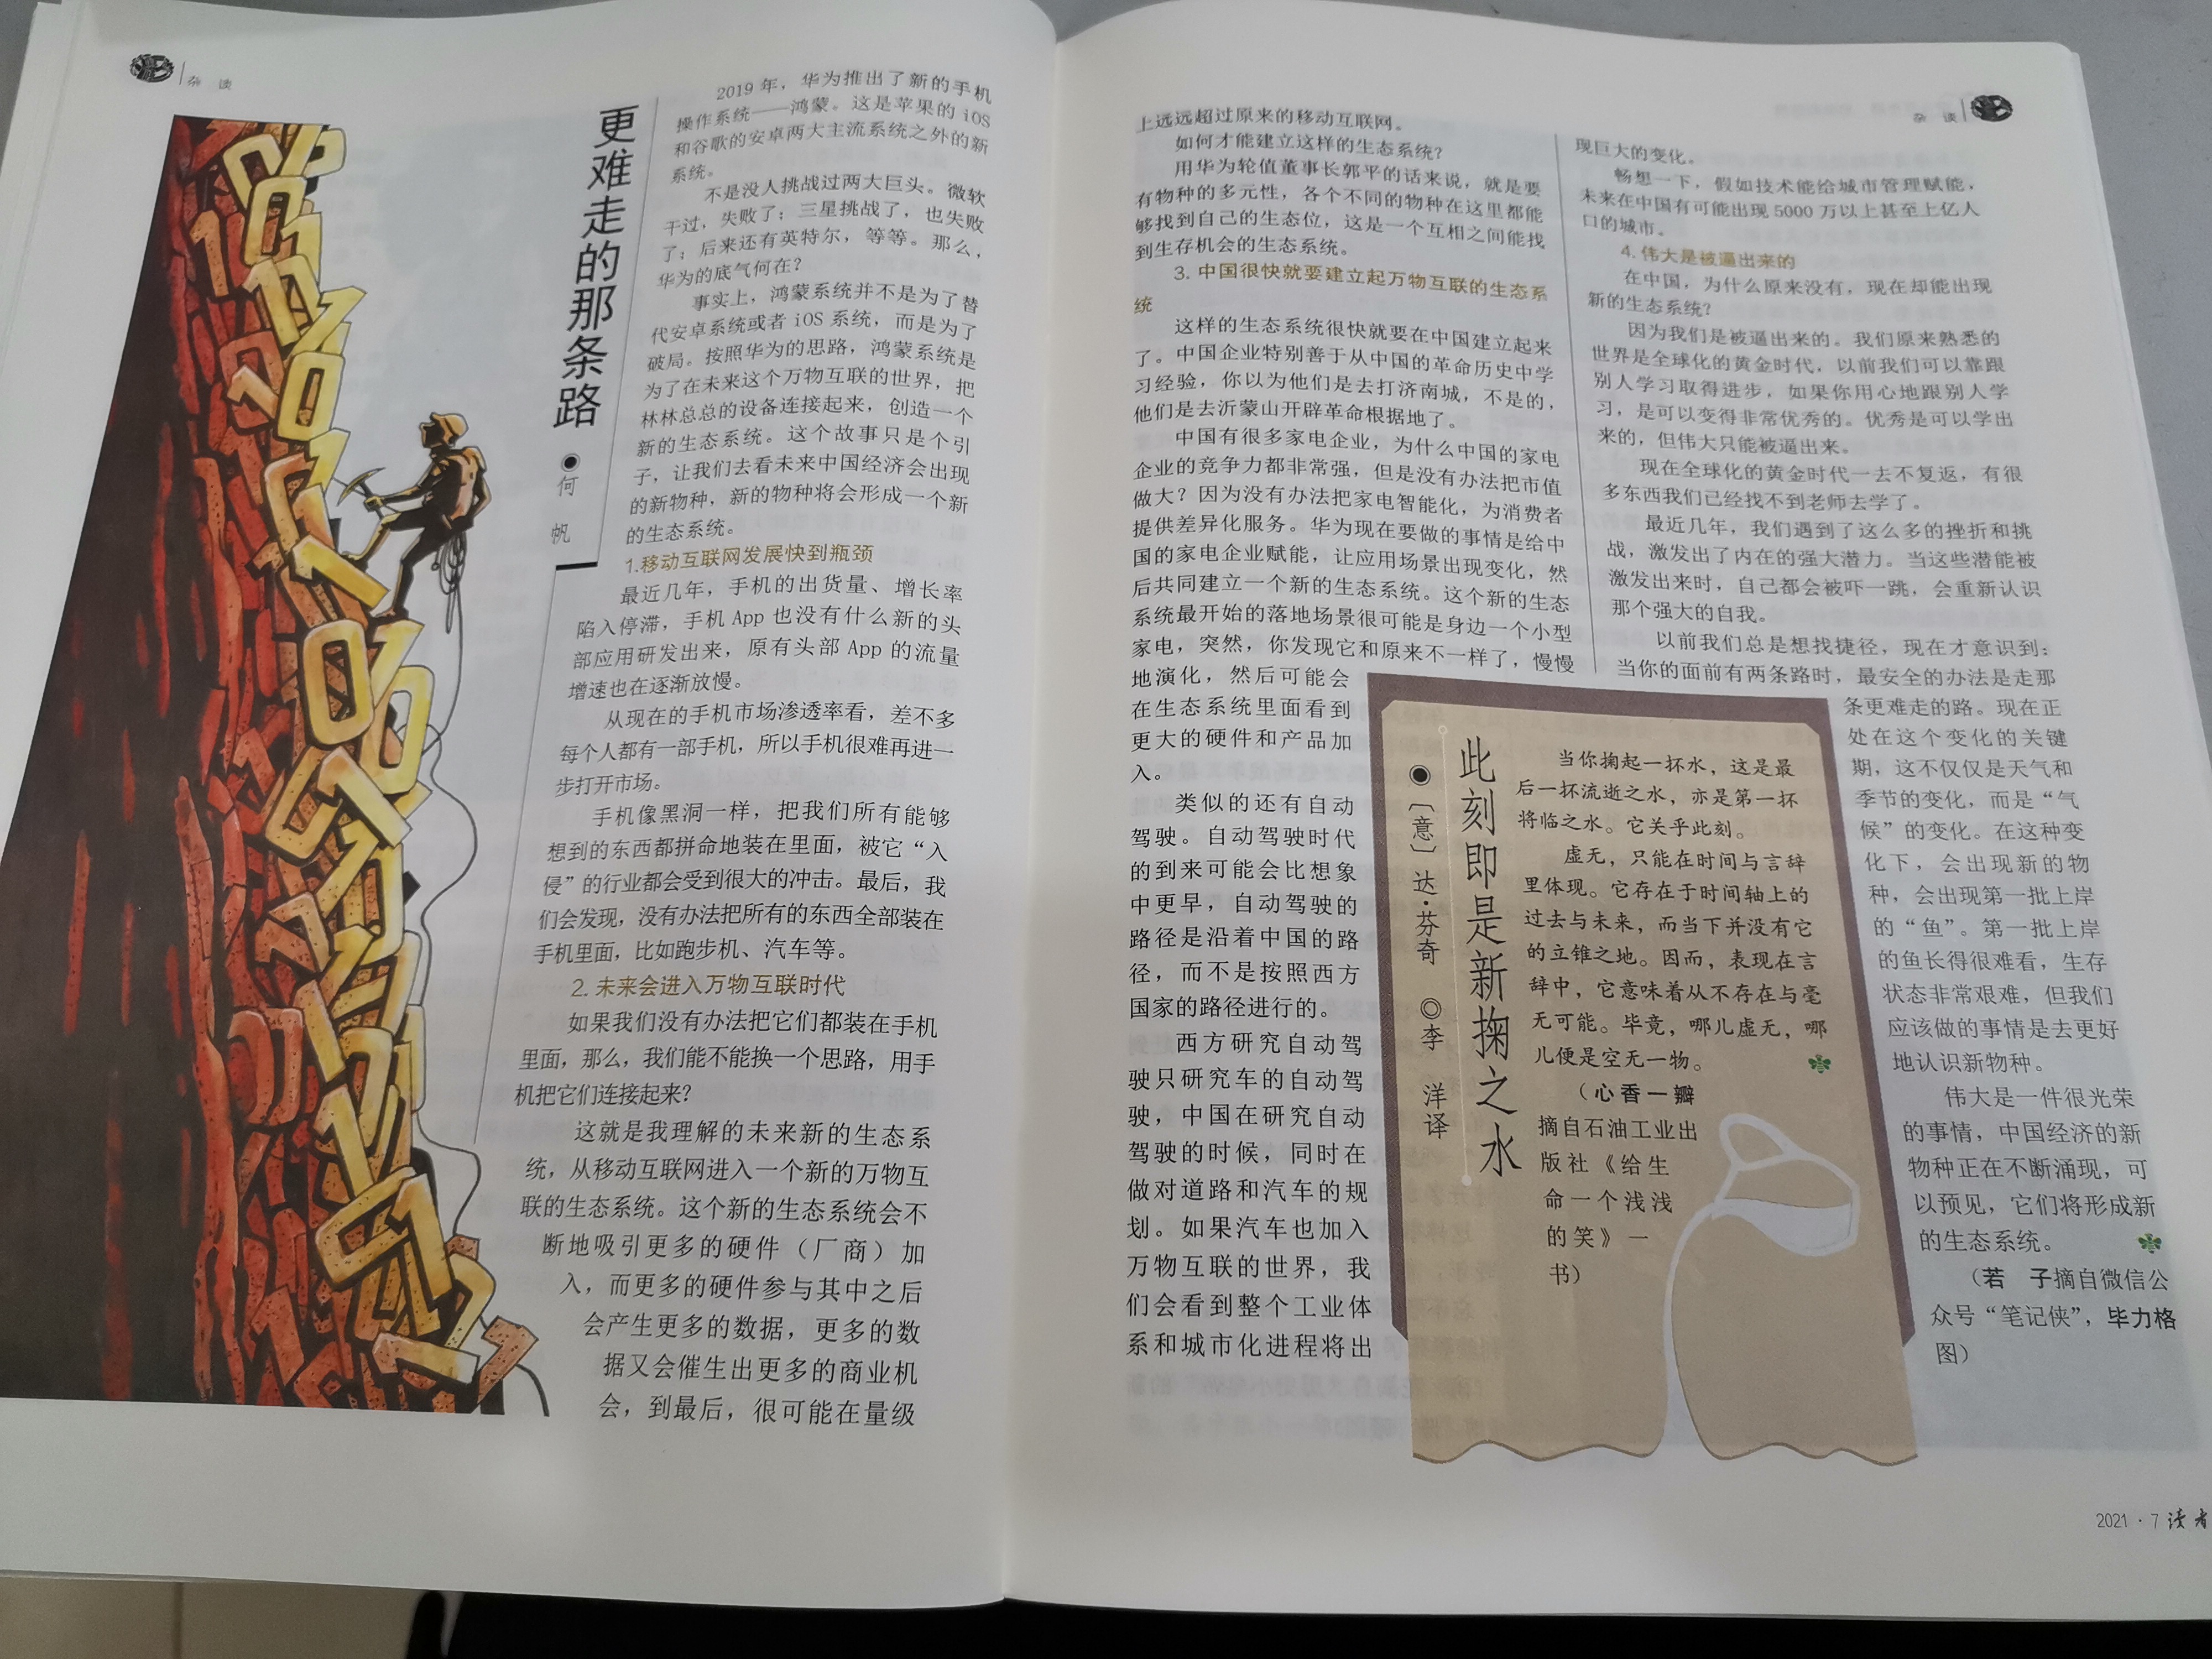 杂 读
更难走的那条路
●何 帆
2019 年，华为推出了新的手机
操作系统——鸿蒙。这是苹果的 iOS
和谷歌的安卓两大主流系统之外的新
系统。
不是没人挑战过两大巨头。微软
干过，失败了；三星挑战了，也失败
了；后来还有英特尔，等等。那么，
华为的底气何在？
事实上，鸿蒙系统并不是为了替
代安卓系统或者 iOS 系统，而是为了
破局。按照华为的思路，鸿蒙系统是
为了在未来这个万物互联的世界，把
林林总总的设备连接起来，创造一个
新的生态系统。这个故事只是个引
子，让我们去看未来中国经济会出现
的新物种，新的物种将会形成一个新
的生态系统。
1.移动互联网发展快到瓶颈
最近几年，手机的出货量、增长率
陷入停滞，手机 App 也没有什么新的头
部应用研发出来，原有头部 App 的流量
增速也在逐渐放慢。
从现在的手机市场渗透率看，差不多
每个人都有一部手机，所以手机很难再进一
步打开市场。
手机像黑洞一样，把我们所有能够
想到的东西都拼命地装在里面，被它“入
侵”的行业都会受到很大的冲击。最后，我
们会发现，没有办法把所有的东西全部装在
手机里面，比如跑步机、汽车等。
2. 未来会进入万物互联时代
如果我们没有办法把它们都装在手机
里面，那么，我们能不能换一个思路，用手
机把它们连接起来？
这就是我理解的未来新的生态系
统，从移动互联网进入一个新的万物互
联的生态系统。这个新的生态系统会不
断地吸引更多的硬件（厂商）加
入，而更多的硬件参与其中之后
会产生更多的数据，更多的数
据又会催生出更多的商业机
会，到最后，很可能在量级
上远远超过原来的移动互联网。
如何才能建立这样的生态系统？
用华为轮值董事长郭平的话来说，就是要
有物种的多元性，各个不同的物种在这里都能
够找到自己的生态位，这是一个互相之间能找
到生存机会的生态系统。
3. 中国很快就要建立起万物互联的生态系
统
这样的生态系统很快就要在中国建立起来
了。中国企业特别善于从中国的革命历史中学
习经验，你以为他们是去打济南城，不是的，
他们是去沂蒙山开辟革命根据地了。
中国有很多家电企业，为什么中国的家电
企业的竞争力都非常强，但是没有办法把市值
做大？因为没有办法把家电智能化，为消费者
提供差异化服务。华为现在要做的事情是给中
国的家电企业赋能，让应用场景出现变化，然
后共同建立一个新的生态系统。这个新的生态
系统最开始的落地场景很可能是身边一个小型
家电，突然，你发现它和原来不一样了，慢慢
地演化，然后可能会
在生态系统里面看到
更大的硬件和产品加
入。
类似的还有自动
驾驶。自动驾驶时代
的到来可能会比想象
中更早，自动驾驶的
路径是沿着中国的路
径，而不是按照西方
国家的路径进行的。
西方研究自动驾
驶只研究车的自动驾
驶，中国在研究自动
驾驶的时候，同时在
做对道路和汽车的规
划。如果汽车也加入
万物互联的世界，我
们会看到整个工业体
系和城市化进程将出
杂 读
现巨大的变化。
畅想一下，假如技术能给城市管理赋能，
未来在中国有可能出现 5000 万以上甚至上亿人
口的城市。
4. 伟大是被逼出来的
在中国，为什么原来没有，现在却能出现
新的生态系统？
因为我们是被逼出来的。我们原来熟悉的
世界是全球化的黄金时代，以前我们可以靠跟
别人学习取得进步，如果你用心地跟别人学
习，是可以变得非常优秀的。优秀是可以学出
来的，但伟大只能被逼出来。
现在全球化的黄金时代一去不复返，有很
多东西我们已经找不到老师去学了。
最近几年，我们遇到了这么多的挫折和挑
战，激发出了内在的强大潜力。当这些潜能被
激发出来时，自己都会被吓一跳，会重新认识
那个强大的自我。
以前我们总是想找捷径，现在才意识到：
当你的面前有两条路时，最安全的办法是走那
条更难走的路。现在正
处在这个变化的关键
期，这不仅仅是天气和
季节的变化，而是“气
候”的变化。在这种变
化下，会出现新的物
种，会出现第一批上岸
的“鱼”。第一批上岸
的鱼长得很难看，生存
状态非常艰难，但我们
应该做的事情是去更好
地认识新物种。
伟大是一件很光荣
的事情，中国经济的新
物种正在不断涌现，可
以预见，它们将形成新
的生态系统。
（若 子摘自微信公
众号“笔记侠”，毕力格
图）
此刻即是新掬之水
●〔意〕达·芬奇 ◎李 洋译
当你掬起一抔水，这是最
后一抔流逝之水，亦是第一抔
将临之水。它关乎此刻。
虚无，只能在时间与言辞
里体现。它存在于时间轴上的
过去与未来，而当下并没有它
的立锥之地。因而，表现在言
辞中，它意味着从不存在与毫
无可能。毕竟，哪儿虚无，哪
儿便是空无一物。
（心香一瓣
摘自石油工业出
版社《给生
命一个浅浅
的笑》一
书）
2021·7 读者